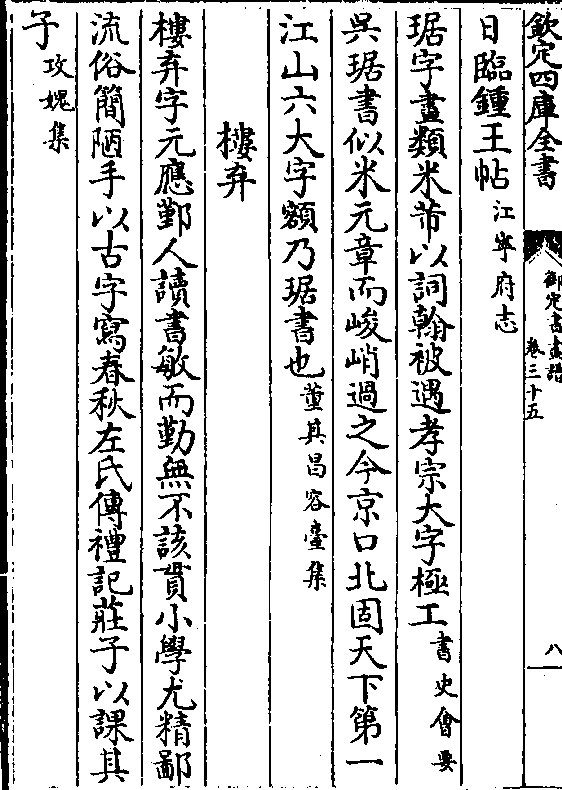 欽定四庫全書
御定書畫譜
卷三十五
八
日臨鍾王帖江寧府志
琚字畫類米芾以詞翰被遇孝宗大字極工書史會要
吳琚書似米元章而峻峭過之今京口北固天下第一
江山六大字額乃琚書也董其昌容臺集
樓弆
樓弆字元應鄞人讀書敏而勤無不該貫小學尤精鄙
流俗簡陋手以古字寫春秋左氏傳禮記莊子以課其
子攻媿集